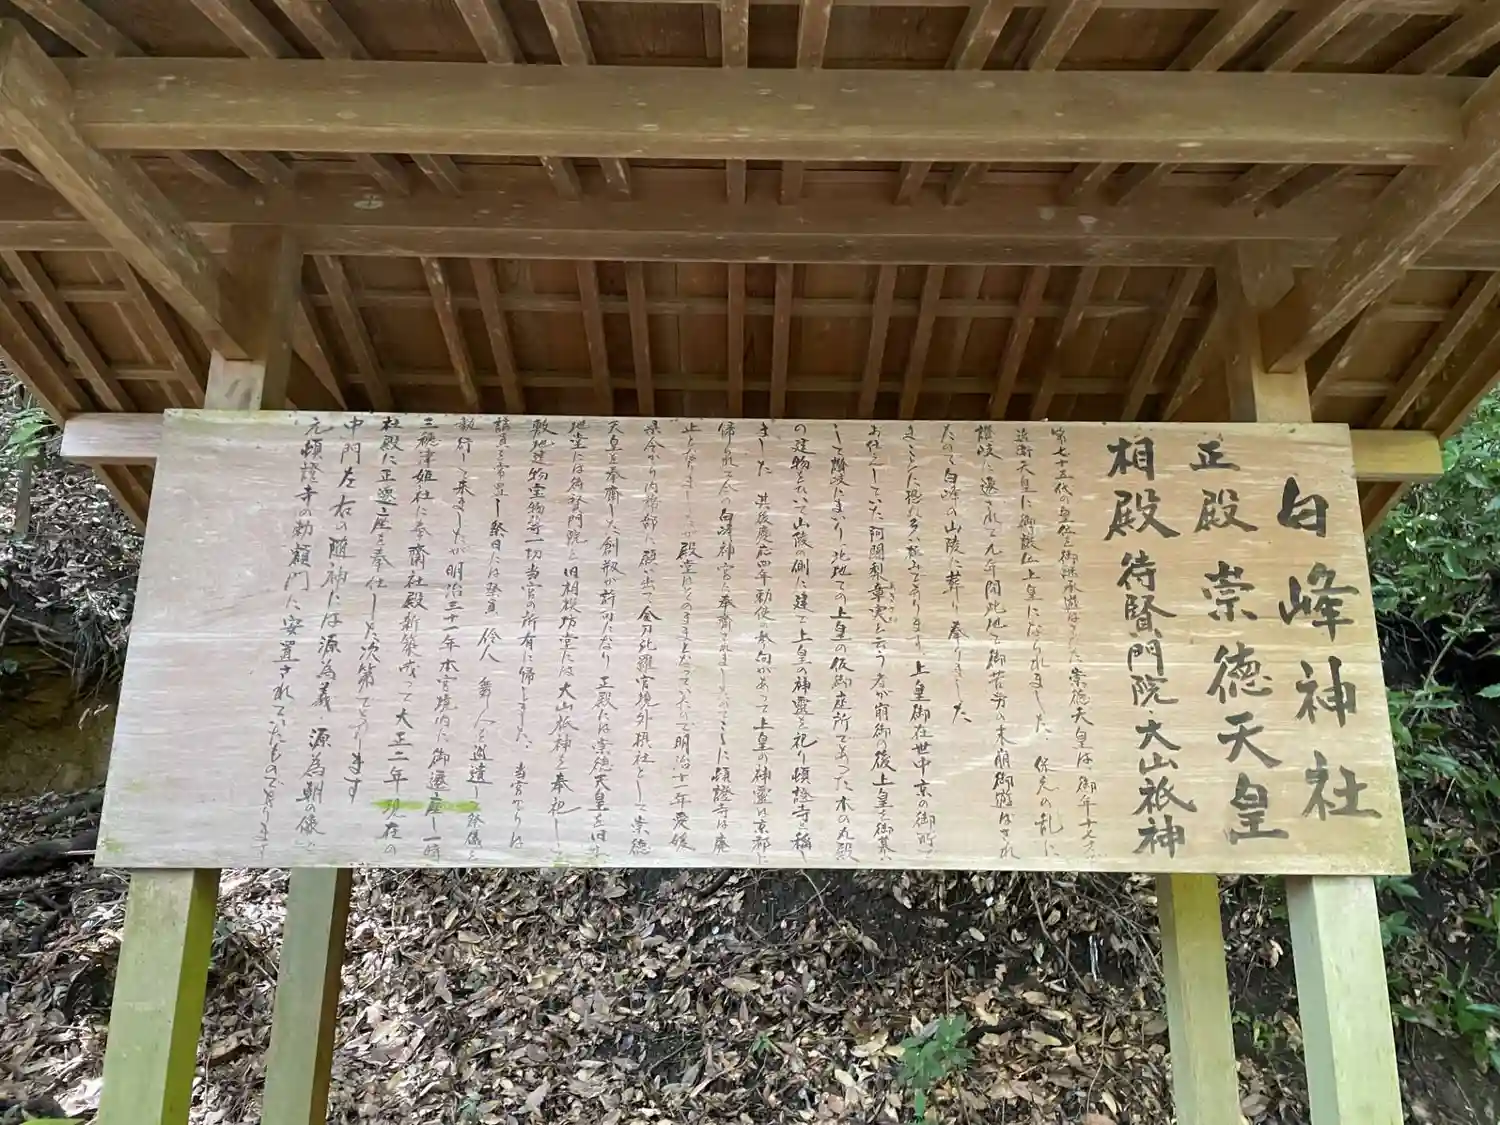 白峰神社
正殿 崇徳天皇
相殿 待賢門院 大山祇神
第七十五代の皇位を御継承遊ばされた崇徳天皇は、御年十七才
近衛天皇に御譲位上皇になられました 保元の乱に
讃岐に遷されて九年間此地で御苦労の末崩御遊ばされ
たので白峰の山陵に葬り奉りました
まことに恐れ多い極みであります、上皇御在世中京の御所で
お仕えしていた阿闍梨章実と云う者が崩御の後上皇を御慕い
して讃岐にまいり此地での上皇の仮御座所であった木の丸殿
の建物をひいて山陵の側に建て上皇の神霊を祀り頓證寺と称し
ました 其後慶応四年勅使の参向があって上皇の神霊は京都に
帰られ今の白峰神宮に奉斎されましたのでここに頓證寺は廃
止となりましたが殿堂はそのままとなっていたので明治十一年愛媛
県令から内務部に願い出て金刀比羅宮境外摂社として崇徳
天皇を奉斎した創叙が許可になり 正殿には崇徳天皇を旧
地堂には待賢門院を旧相模坊堂には大山祇神を奉祀し
敷地建物宝物等一切当宮の所有に帰しました 当宮では
議員を常置し祭日には祭員 伶人 舞人を派遣し祭儀を
執行して来ましたが明治三十一年本宮境内に御遷座し一時
三穂津姫社に奉斎社殿新築成って大正二年現在の
社殿に正遷座を奉仕した次第であります
中門左右の随神には源為義、源為朝の像で
元頓證寺の勅額門に安置されていたものであります